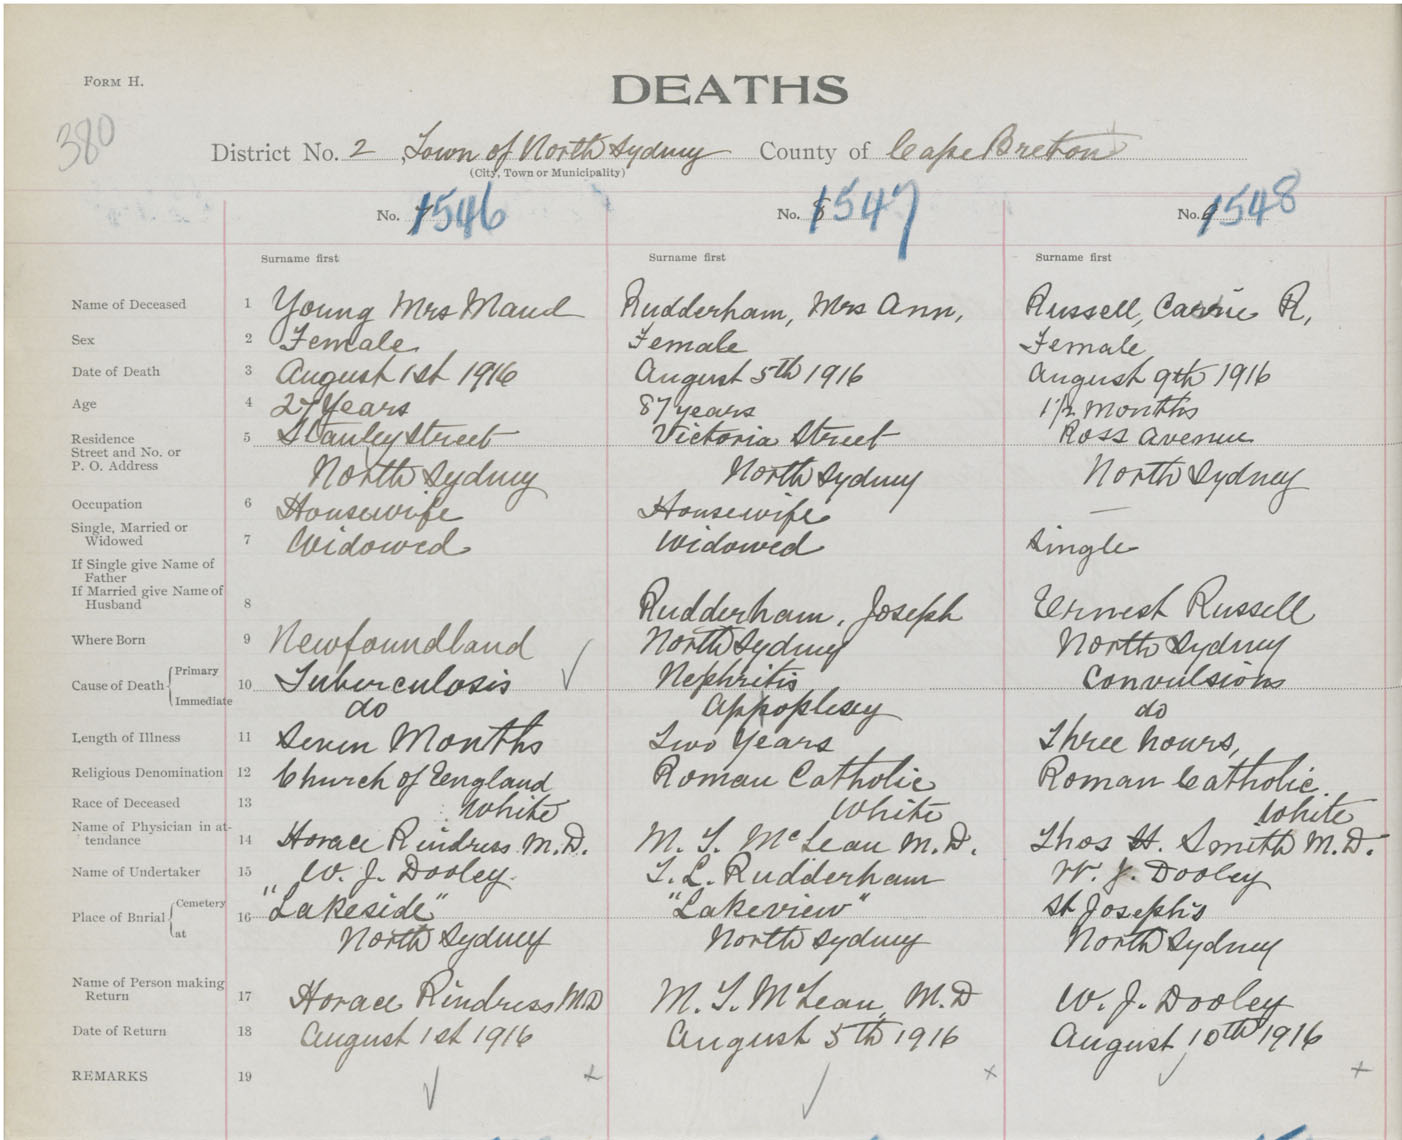 FORM H.
DEATHS
380
District No. 2 , Town of North Sydney County of Cape Breton
(City, Town or Municipality)
No. 7 1546 No. 8 1547 No. 9 1548
Surname first Surname first Surname first
Name of Deceased 1 Young Mrs Maud Rudderham, Mrs Ann, Russell, Carrie R,
Sex 2 Female Female Female
Date of Death 3 August 1st 1916 August 5th 1916 August 9th 1916
Age 4 27 Years 87 years 1 1/2 Months
Residence 5 Stanley Street Victoria Street Ross Avenue
Street and No. or
P. O. Address North Sydney North Sydney North Sydney
Occupation 6 Housewife Housewife —
Single, Married or
Widowed 7 Widowed Widowed Single
If Single give Name of
Father
If Married give Name of
Husband 8 Rudderham, Joseph Ernest Russell
Where Born 9 Newfoundland North Sydney North Sydney
Cause of Death { Primary 10 Tuberculosis Nephritis Convulsions
Immediate do Appoplexy do
Length of Illness 11 Seven Months Two Years Three hours,
Religious Denomination 12 Church of England Roman Catholic Roman Catholic
Race of Deceased 13 White White White
Name of Physician in at-
tendance 14 Horace Rindress M.D. M. T. McLean M.D. Thos H. Smith M.D.
Name of Undertaker 15 W. J. Dooley T. L. Rudderham W. J. Dooley
Place of Burial { Cemetery 16 "Lakeside" "Lakeview" St Joseph's
at North Sydney North Sydney North Sydney
Name of Person making
Return 17 Horace Rindress MD M. T. McLean, M.D W. J. Dooley
Date of Return 18 August 1st 1916 August 5th 1916 August 10th 1916
REMARKS 19